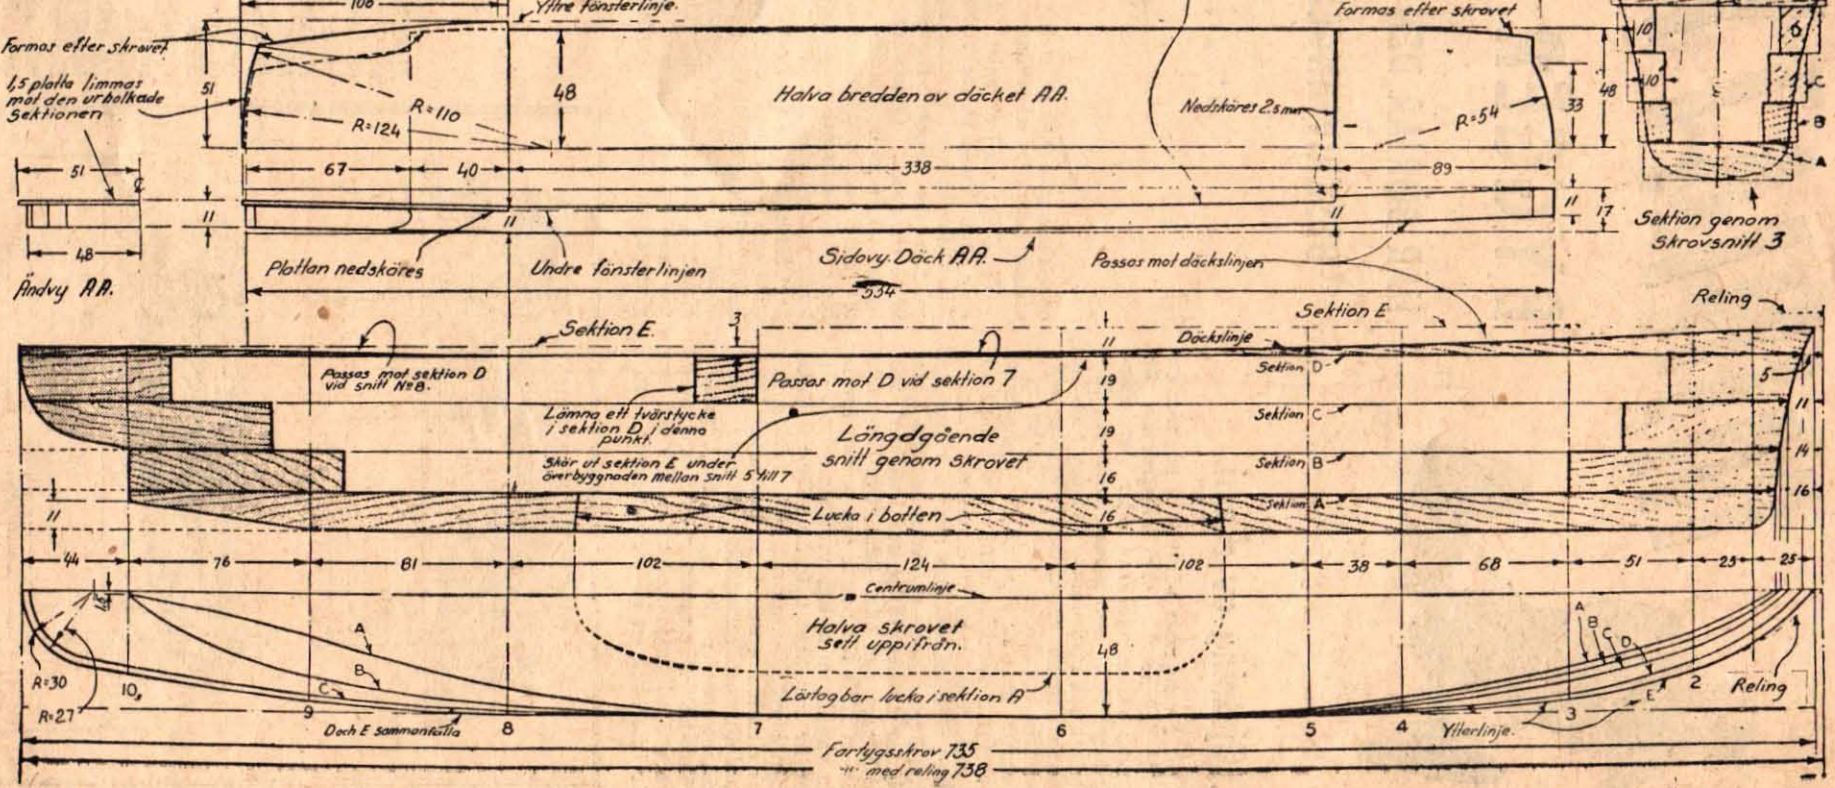 106
Yttre fönsterlinje.
Formas efter skrovet
Formas efter skrovet
1,5 platta limmas
mot den urholkade
Sektionen
51
R=110
R=124
48
Halva bredden av däcket AA.
Nedskäres 2.5mm
R=54
33
48
10
10
C
B
A
67
40
338
89
51
11
48
11
11
11
17
Ändvy AA.
Plattan nedskäres
Undre fönsterlinjen
Sidovy. Däck AA.
Passas mot däckslinjen
Sektion genom
skrovsnitt 3
554
Reling
Sektion E.
3
Sektion E
11
Däckslinje
Passas mot sektion D
vid snitt No8.
Passas mot D vid sektion 7
19
Sektion D
5
Lämna ett tvärstycke
i sektion D i denna
punkt.
Längdgående
snitt genom skrovet
19
Sektion C
11
Skär ut sektion E under
överbyggnaden mellan snitt 5 till 7
16
Sektion B
14
11
Lucka i botten
16
Sektion A
16
44
76
81
102
124
102
38
68
51
25
25
Centrumlinje
Halva skrovet
sett uppifrån.
48
A
B
C
A
B
C
D
E
R=30
R=27
Löstagbar lucka i sektion A
Reling
10
9
8
7
6
5
4
3
2
D och E sammanfalla
Ytterlinje.
Fartygsskrov 735
" med reling 738